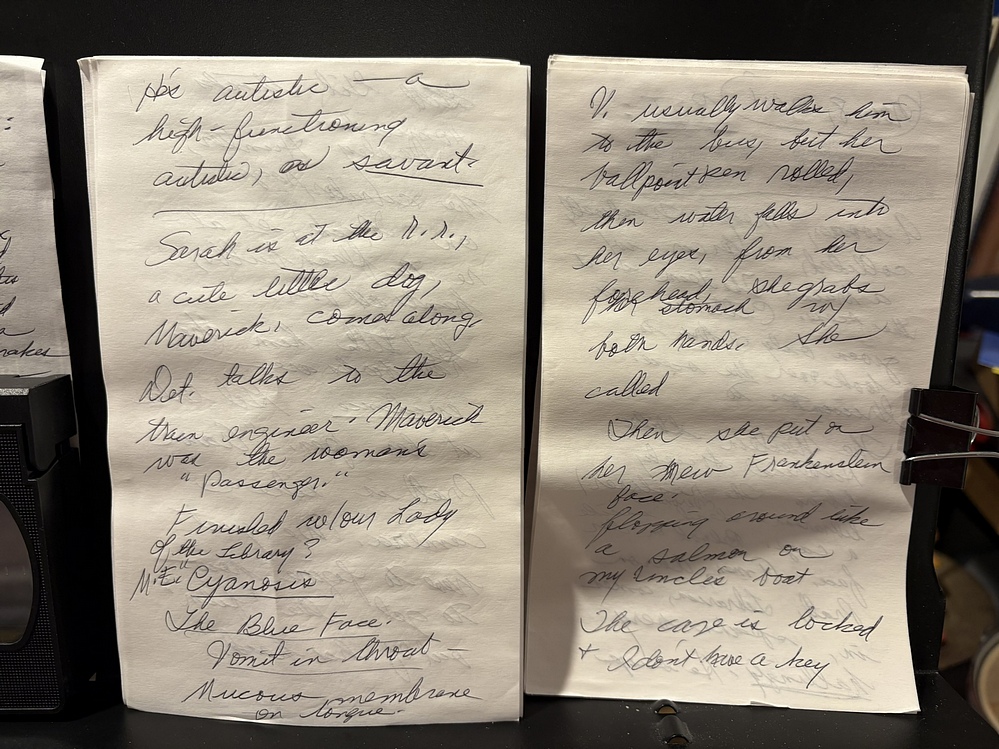 nakes
He's autistic — a
high-functioning
autistic, or savant.
Sarah is at the R.R.,
a cute little dog,
Maverick, comes along,
Det. talks to the
train engineer. Maverick
was the woman's
"passenger."
Finished w/our Lady
of the Library?
M.E. Cyanosis
The Blue Face.
Vomit in throat —
Mucous membrane
on tongue.
V. usually walks him
to the bus, but her
ballpoint pen rolled,
then water falls into
her eyes, from her
forehead, she grabs
her stomach w/
both hands. She
called
Then she put on
her new Frankenstein
face.
flopping around like
a salmon on
my Uncle's boat
The case is locked
+ I don't have a key